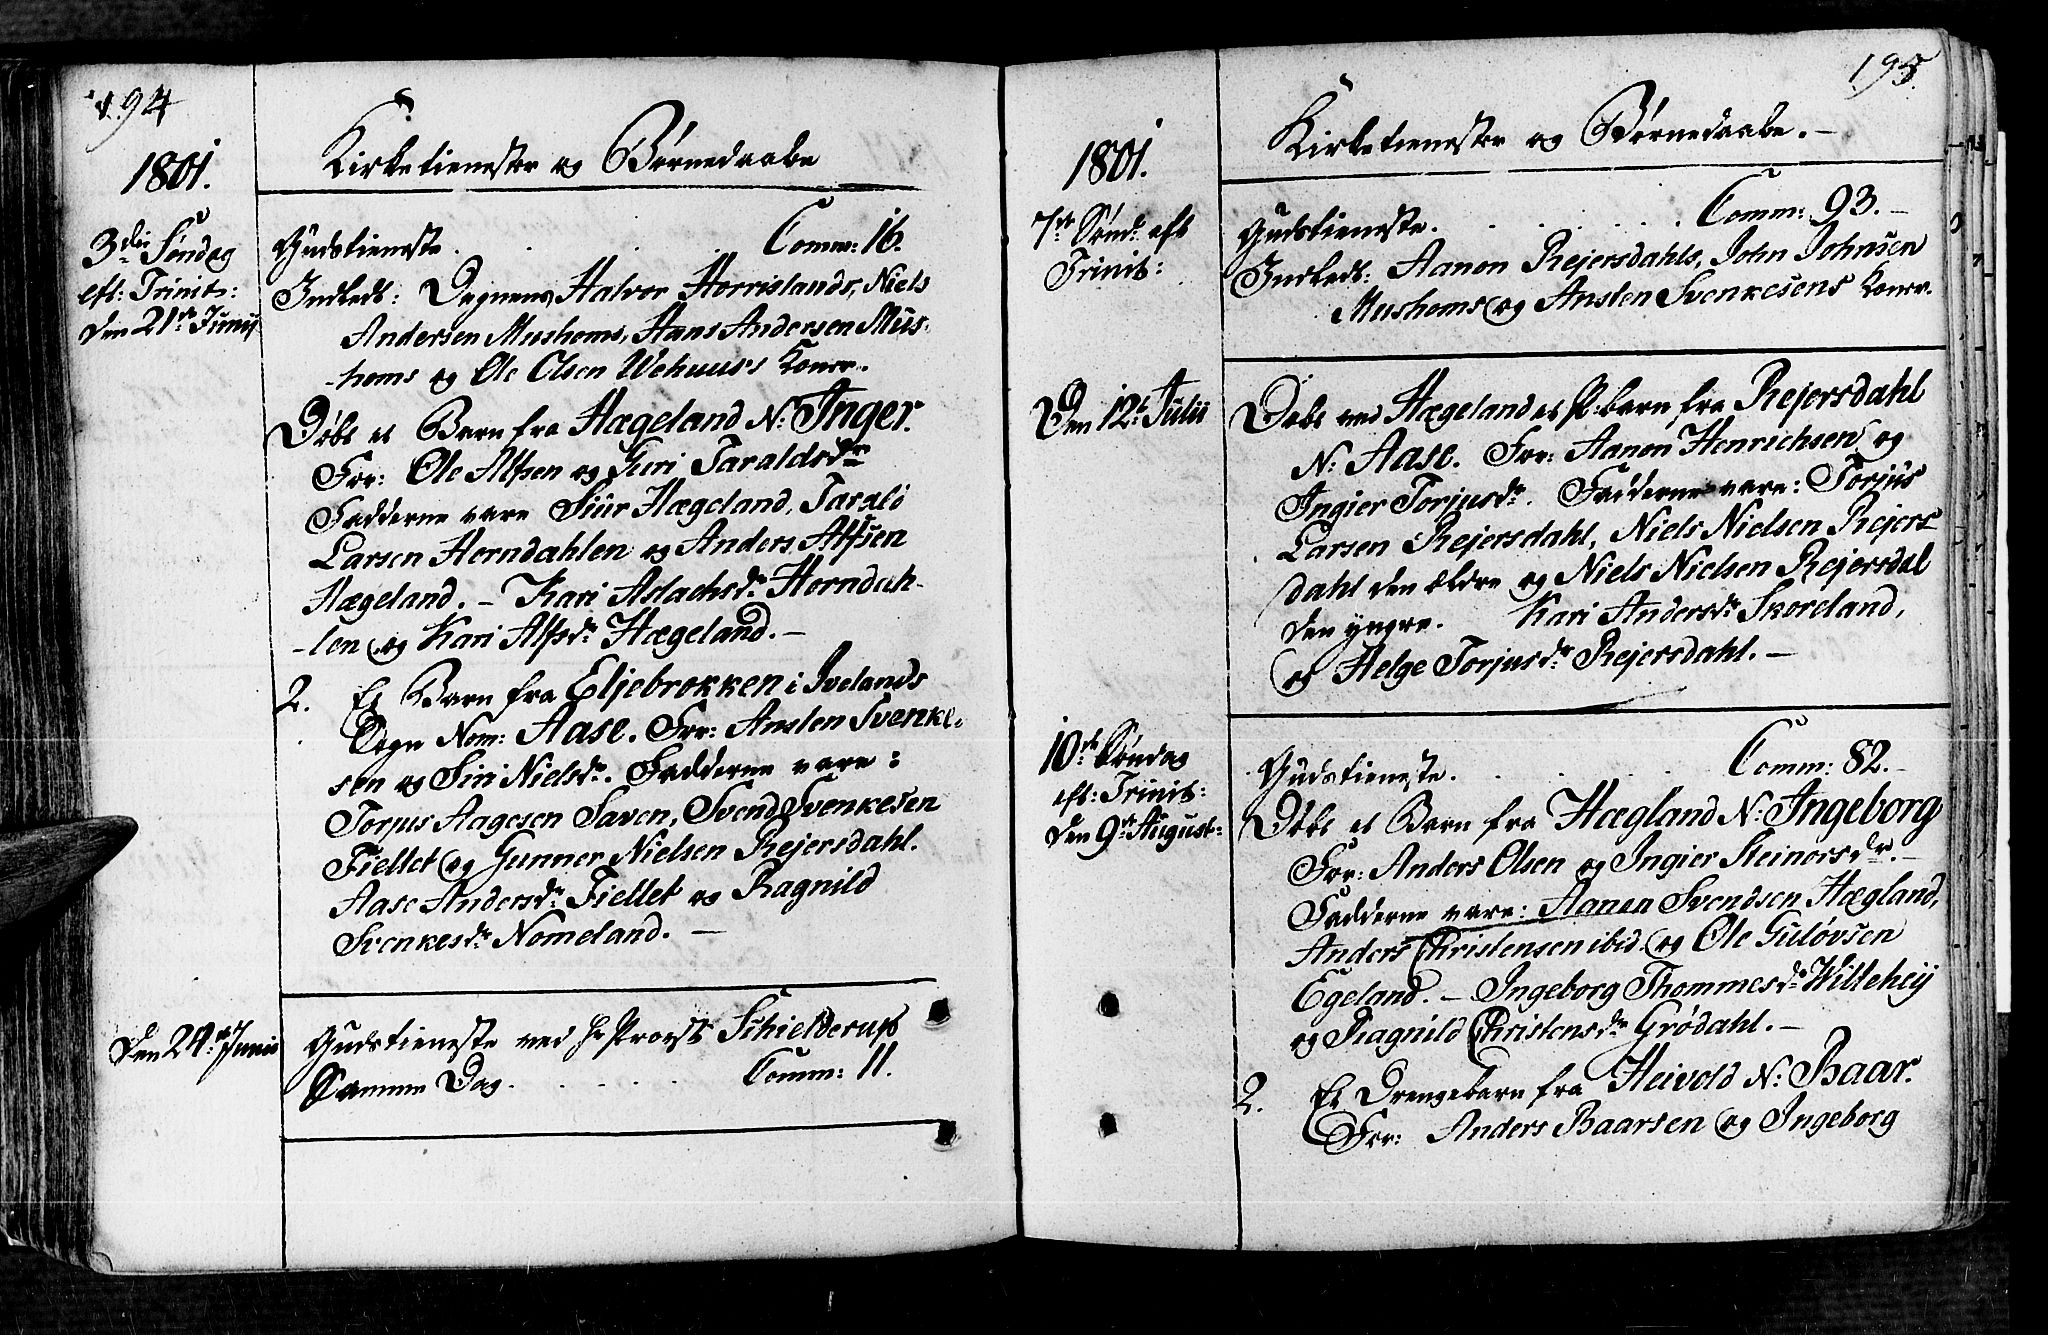 194
1801.
Kirketienester og Børnedaabe
3die Søndag
eft: Trinit:
Den 21de Junij
Gudstieneste. Comm: 16.
Indledt: Degnens Halvor Horrislands, Niels
Andersen Mushoms, Hans Andersen Mus-
-homs og Ole Olsen Wehuus's Koner.
Døbt et Barn fra Hægeland N: Inger.
For: Ole Alfsen og Guri Taraldsdr
Fadderne vare Siur Hægeland, Tarald
Larsen Horndahlen og Anders Alfsen
Hægeland. - Kari Aslachsdr Horndah-
-len og Kari Alfsdr Hægeland. -
2. Et Barn fra Eljebrokken i Ivelands
Sogn Nom: Aase. For: Ansten Svenke-
sen og Siri Nielsdr. Fadderne vare:
Torjus Aagesen Saven, Svend Svenkesen
Fiellet og Gunner Nielsen Rejersdahl.
Aase Andersdr Fiellet og Ragnild
Svenkesdr Nomeland. -
Den 24de Junii
Gudstieneste ved Hr Provst Schielderup
Samme Dag. Comm: 11.
195.
1801.
Kirketienester og Børnedaabe. -
7de Sønd. eft
Trinit:
Gudstieneste. Comm: 93. -
Indledt: Aanon Rejersdahls, John Johnsen
Mushoms og Ansten Svenkesens Koner.
Den 12te Julii
Døbt ved Hægeland et P:barn fra Rejersdahl
N: Aase. For: Aanon Henrichsen og
Ingier Torjusdr. Fadderne vare: Torjus
Larsen Rejersdahl, Niels Nielsen Rejers-
dahl den ældre og Niels Nielsen Rejersdal
den yngre. Kari Andersdr Skoreland,
og Helge Torjusdr Rejersdahl. -
10de Søndag
eft: Trinit:
Den 9de August:
Gudstieneste. Comm: 82. -
Døbt et Barn fra Hægland N: Ingeborg
For: Anders Olsen og Ingier Steinorsdr. -
Fadderne vare: Aanen Svendsen Hægland,
Anders Christensen ibid og Ole Guløvsen
Egeland. - Ingeborg Thommesdr Wittehej
og Ragnild Christensdr Grødahl. -
2. Et Drengebarn fra Heivold N: Baar.
For: Anders Baarsen og Ingeborg